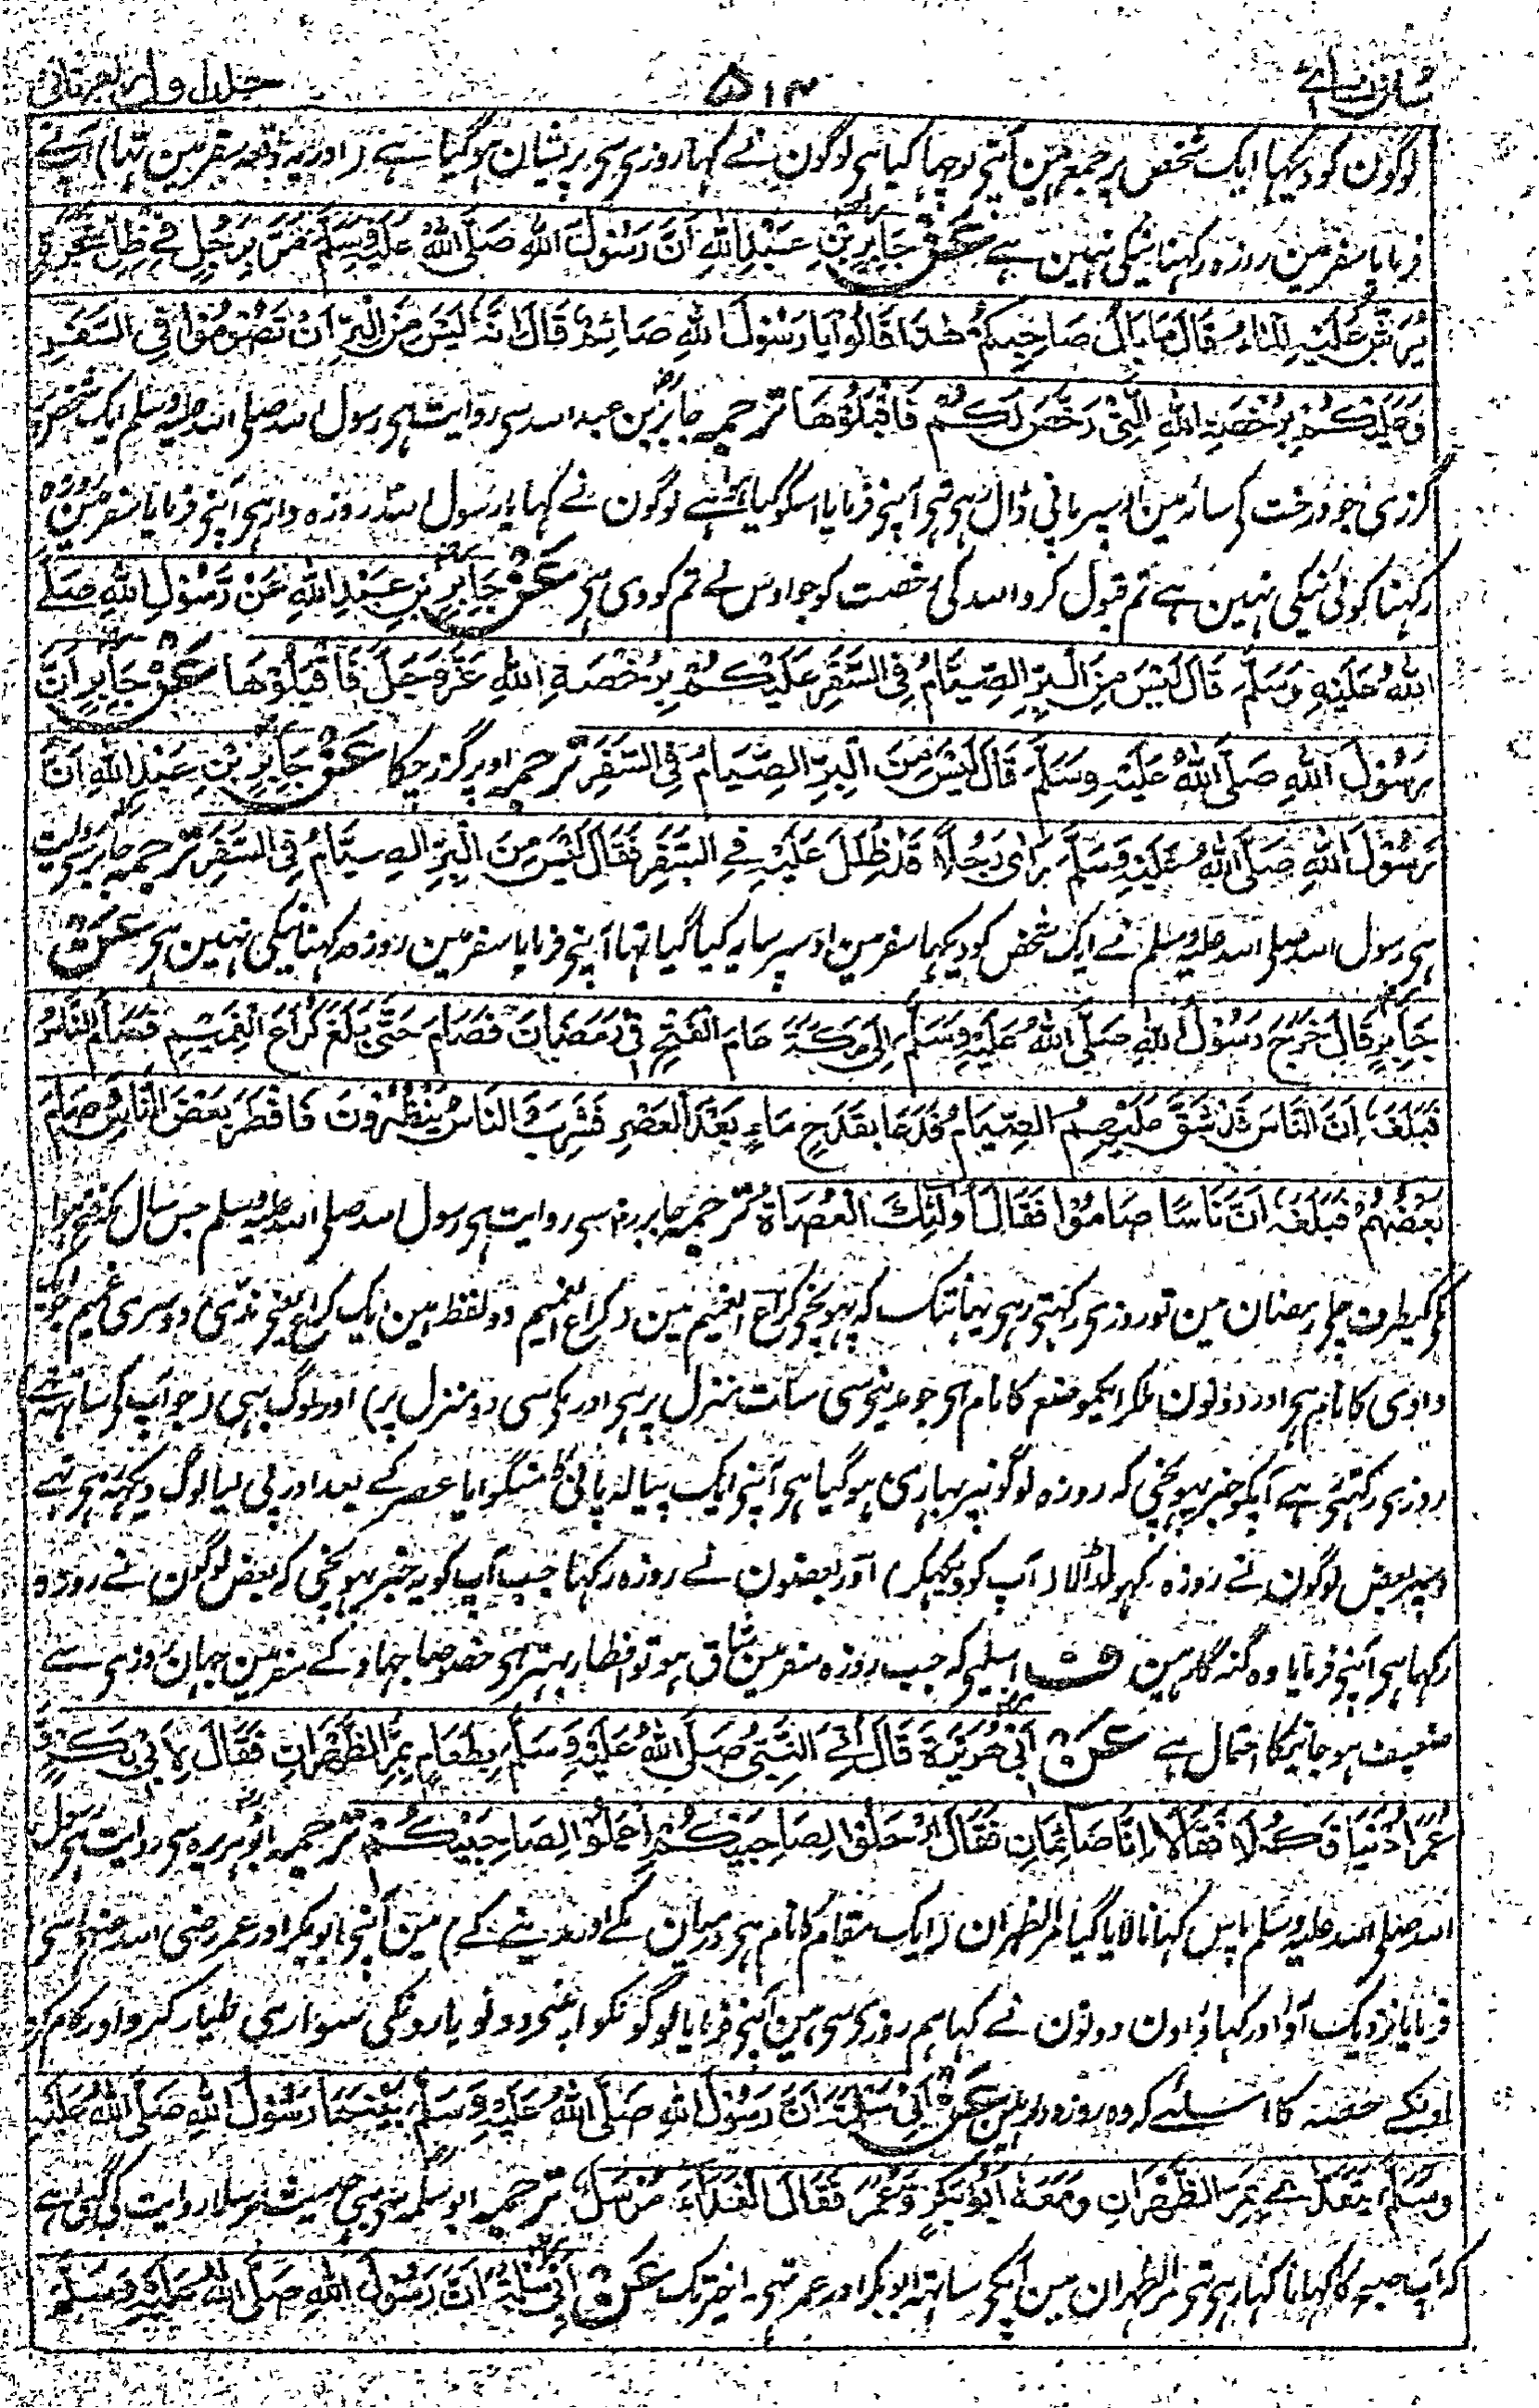 ۵۱۴
لوگون کو دیکھا ایک شخص پر جمع ہین آپنے پوچھا کیا ہی لوگون نے کہا روزی سی پریشان ہوگیا ہے (اور یہ واقعہ سفر مین تہا) آپنے
فرمایا سفر مین روزہ رکہنا نیکی نہین ہے عَنْ جَابِرِ بْنِ عَبْدِ اللهِ اَنَّ رَسُوْلَ اللهِ صَلَّى اللهُ عَلَيْهِ وَسَلَّمَ مَرَّ بِرَجُلٍ فِيْ ظِلِّ شَجَرَةٍ
يُرَشُّ عَلَيْهِ الْمَاءُ قَالَ مَا بَالُ صَاحِبِكُمْ هٰذَا قَالُوْا يَا رَسُوْلَ اللهِ صَائِمٌ قَالَ اِنَّهٗ لَيْسَ مِنَ الْبِرِّ اَنْ تَصُوْمُوْا فِي السَّفَرِ
وَعَلَيْكُمْ بِرُخْصَةِ اللهِ الَّتِيْ رَخَّصَ لَكُمْ فَاقْبَلُوْهَا ترجمہ جابر بن عبد اللہ سی روایت ہی رسول اللہ صلی اللہ علیہ وسلم ایک شخص پر
گزری جو درخت کی سائے مین اوسپر پانی ڈال رہی تہی آپنے فرمایا اسکو کیا ہوا ہے لوگون نے کہا یا رسول اللہ روزہ دار ہی آپنے فرمایا سفر مین روزہ
رکہنا کوئی نیکی نہین ہے تم قبول کرو اللہ کی رخصت کو جو اوس نے تم کو دی ہی عَنْ جَابِرِ بْنِ عَبْدِ اللهِ عَنْ رَّسُوْلِ اللهِ صَلَّى
اللهُ عَلَيْهِ وَسَلَّمَ قَالَ لَيْسَ مِنَ الْبِرِّ الصِّيَامُ فِي السَّفَرِ عَلَيْكُمْ بِرُخْصَةِ اللهِ عَزَّ وَجَلَّ فَاقْبَلُوْهَا عَنْ جَابِرٍ اَنَّ
رَسُوْلَ اللهِ صَلَّى اللهُ عَلَيْهِ وَسَلَّمَ قَالَ لَيْسَ مِنَ الْبِرِّ الصِّيَامُ فِي السَّفَرِ ترجمہ اوپر گزر چکا عَنْ جَابِرِ بْنِ عَبْدِ اللهِ اَنَّ
رَسُوْلَ اللهِ صَلَّى اللهُ عَلَيْهِ وَسَلَّمَ رَاٰى رَجُلًا قَدْ ظُلِّلَ عَلَيْهِ فِي السَّفَرِ فَقَالَ لَيْسَ مِنَ الْبِرِّ الصِّيَامُ فِي السَّفَرِ ترجمہ جابر سی روایت
ہی رسول اللہ صلی اللہ علیہ وسلم نے ایک شخص کو دیکہا سفر مین اوسپر سایہ کیا گیا تہا آپنے فرمایا سفر مین روزہ رکہنا نیکی نہین ہی عَنْ
جَابِرٍ قَالَ خَرَجَ رَسُوْلُ اللهِ صَلَّى اللهُ عَلَيْهِ وَسَلَّمَ اِلٰى مَكَّةَ عَامَ الْفَتْحِ فِيْ رَمَضَانَ فَصَامَ حَتّٰى بَلَغَ كُرَاعَ الْغَمِيْمِ فَصَامَ النَّاسُ
فَبَلَغَهٗ اَنَّ النَّاسَ قَدْ شَقَّ عَلَيْهِمُ الصِّيَامُ فَدَعَا بِقَدَحِ مَاءٍ بَعْدَ الْعَصْرِ فَشَرِبَ وَالنَّاسُ يَنْظُرُوْنَ فَاَفْطَرَ بَعْضُ النَّاسِ وَصَامَ
بَعْضُهُمْ فَبَلَغَهٗ اَنَّ نَاسًا صَامُوْا فَقَالَ اُولٰٓئِكَ الْعُصَاةُ ترجمہ جابر رض سی روایت ہی رسول اللہ صلی اللہ علیہ وسلم جس سال مکہ فتح ہوا
مکی کیطرف چلی رمضان مین تو روزی رکہتی رہی یہانتک کہ پہونچی کراع الغمیم مین (کراع الغمیم دو لفظ ہین ایک کراع یعنی ندی دوسری غمیم جو ایک
وادی کا نام ہی اور دونون ملکر ایکموضع کا نام ہی جو مدینی سی سات منزل پر ہی اور مکی سی دو منزل پر) اور لوگ بہی (جو آپ کی ساتہہ تہے)
روزی رکہتی رہے آپکو خبر پہونچی کہ روزہ لوگونپر بہاری ہوگیا ہی آپنے ایک پیالہ پانی کا منگوایا عصر کے بعد اور پی لیا لوگ دیکہہ رہی تہے
پہر بعض لوگون نے روزہ کہول ڈالا (آپ کو دیکہکر) اور بعضون نے روزہ رکہا جب آپ کو یہ خبر پہونچی کہ بعض لوگون نے روزہ
رکہا ہی آپنے فرمایا وہ گنہ گار ہین ف اسلیے کہ جب روزہ سفر مین شاق ہو تو افطار بہتر ہی خصوصا جہاد کے سفر مین جہان روزی سے
ضعیف ہوجانیکا احتمال ہے عَنْ اَبِيْ هُرَيْرَةَ قَالَ اُتِيَ النَّبِيُّ صَلَّى اللهُ عَلَيْهِ وَسَلَّمَ بِطَعَامٍ بِمَرِّ الظَّهْرَانِ فَقَالَ لِاَبِيْ بَكْرٍ وَّ
عُمَرَ ادْنِيَا فَكُلَا فَقَالَا اِنَّا صَائِمَانِ فَقَالَ ارْحَلُوْا لِصَاحِبَيْكُمْ اِعْمَلُوْا لِصَاحِبَيْكُمْ ترجمہ ابو ہریرہ سی روایت ہی رسول
اللہ صلی اللہ علیہ وسلم پاس کہانا لایا گیا مر الظہران (ایک مقام کا نام ہی درمیان مکے اور مدینے کے) مین آپنے ابوبکر اور عمر رضی اللہ عنہما سی
فرمایا نزدیک آؤ اور کہاؤ اون دونون نے کہا ہم روزی سی ہین آپنے فرمایا لوگونکو اپنے دونو یارونکی سواری طیار کرو اور کام کرو
اونکے حصہ کا اسلئے کہ وہ روزہ دار ہین عَنْ اَبِيْ سَلَمَةَ اَنَّ رَسُوْلَ اللهِ صَلَّى اللهُ عَلَيْهِ وَسَلَّمَ بَيْنَمَا رَسُوْلُ اللهِ صَلَّى اللهُ عَلَيْهِ
وَسَلَّمَ يَتَغَدّٰى بِمَرِّ الظَّهْرَانِ وَمَعَهٗ اَبُوْ بَكْرٍ وَّعُمَرُ فَقَالَ الْغَدَاءَ مُرْسَلٌ ترجمہ ابو سلمہ سی یہی حدیث مرسلا روایت کی گئی ہے
کہ آپ صبح کا کہانا کہا رہی تہی مر الظہران مین آپکی ساتہہ ابوبکر اور عمر تہی۔ اخیر تک عَنْ اَبِيْ سَلَمَةَ اَنَّ رَسُوْلَ اللهِ صَلَّى اللهُ عَلَيْهِ وَسَلَّمَ